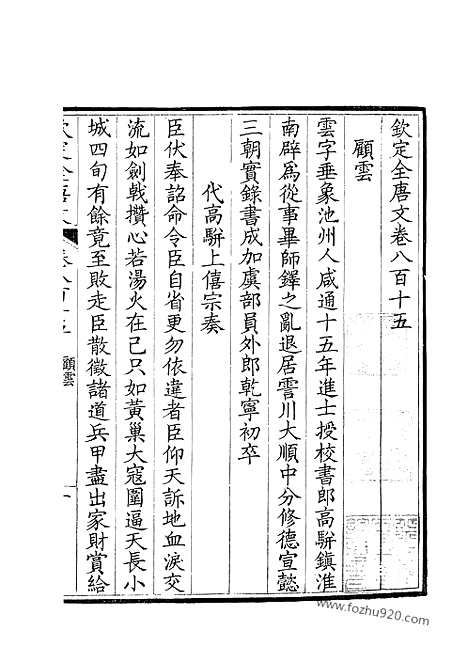 欽定全唐文卷八百十五
顧雲
雲字垂象池州人咸通十五年進士授校書郎高駢鎮淮
南辟為從事畢師鐸之亂退居霅川大順中分修德宣懿
三朝實錄書成加虞部員外郎乾寧初卒
代高駢上僖宗奏
臣伏奉詔命令臣自省更勿依違者臣仰天訴地血淚交
流如劍戟攢心若湯火在已只如黃巢大寇圍逼天長小
城四旬有餘竟至敗走臣散徵諸道兵甲盡出家財賞給
顧雲
一
www.fozhu920.com